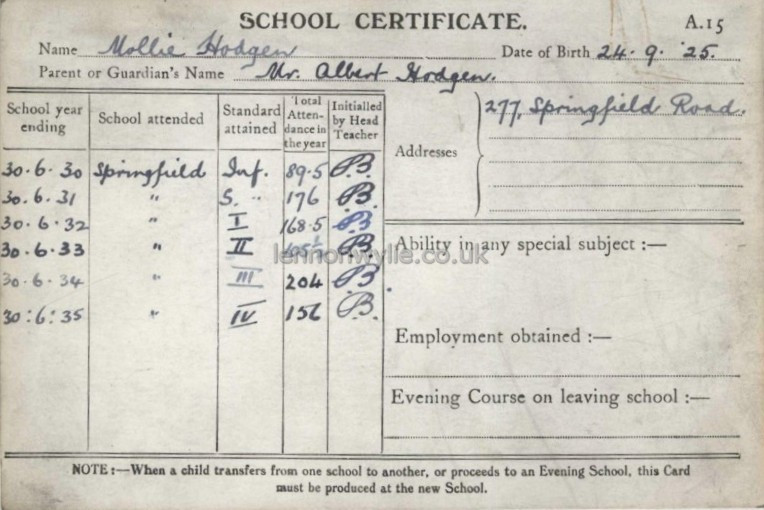 SCHOOL CERTIFICATE. A.15
Name Mollie Hodgen Date of Birth 24.9.'25.
Parent or Guardian's Name Mr. Albert Hodgen.
School year ending School attended Standard attained Total Attendance in the year Initialled by Head Teacher
Addresses 277, Springfield Road.
30.6.30 Springfield Inf. 89.5 P.B.
30.6.31 " S. " 176 P.B.
30.6.32 " I 168.5 P.B.
30.6.33 " II P.B.
30.6.34 " III 204 P.B.
30:6:35 " IV 156 P.B.
Ability in any special subject :—
lennonwylie.co.uk
Employment obtained :—
Evening Course on leaving school :—
NOTE :—When a child transfers from one school to another, or proceeds to an Evening School, this Card
must be produced at the new School.